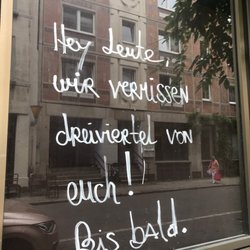 Hey Leute,
wir vermissen
dreiviertel von
euch!
Bis bald.